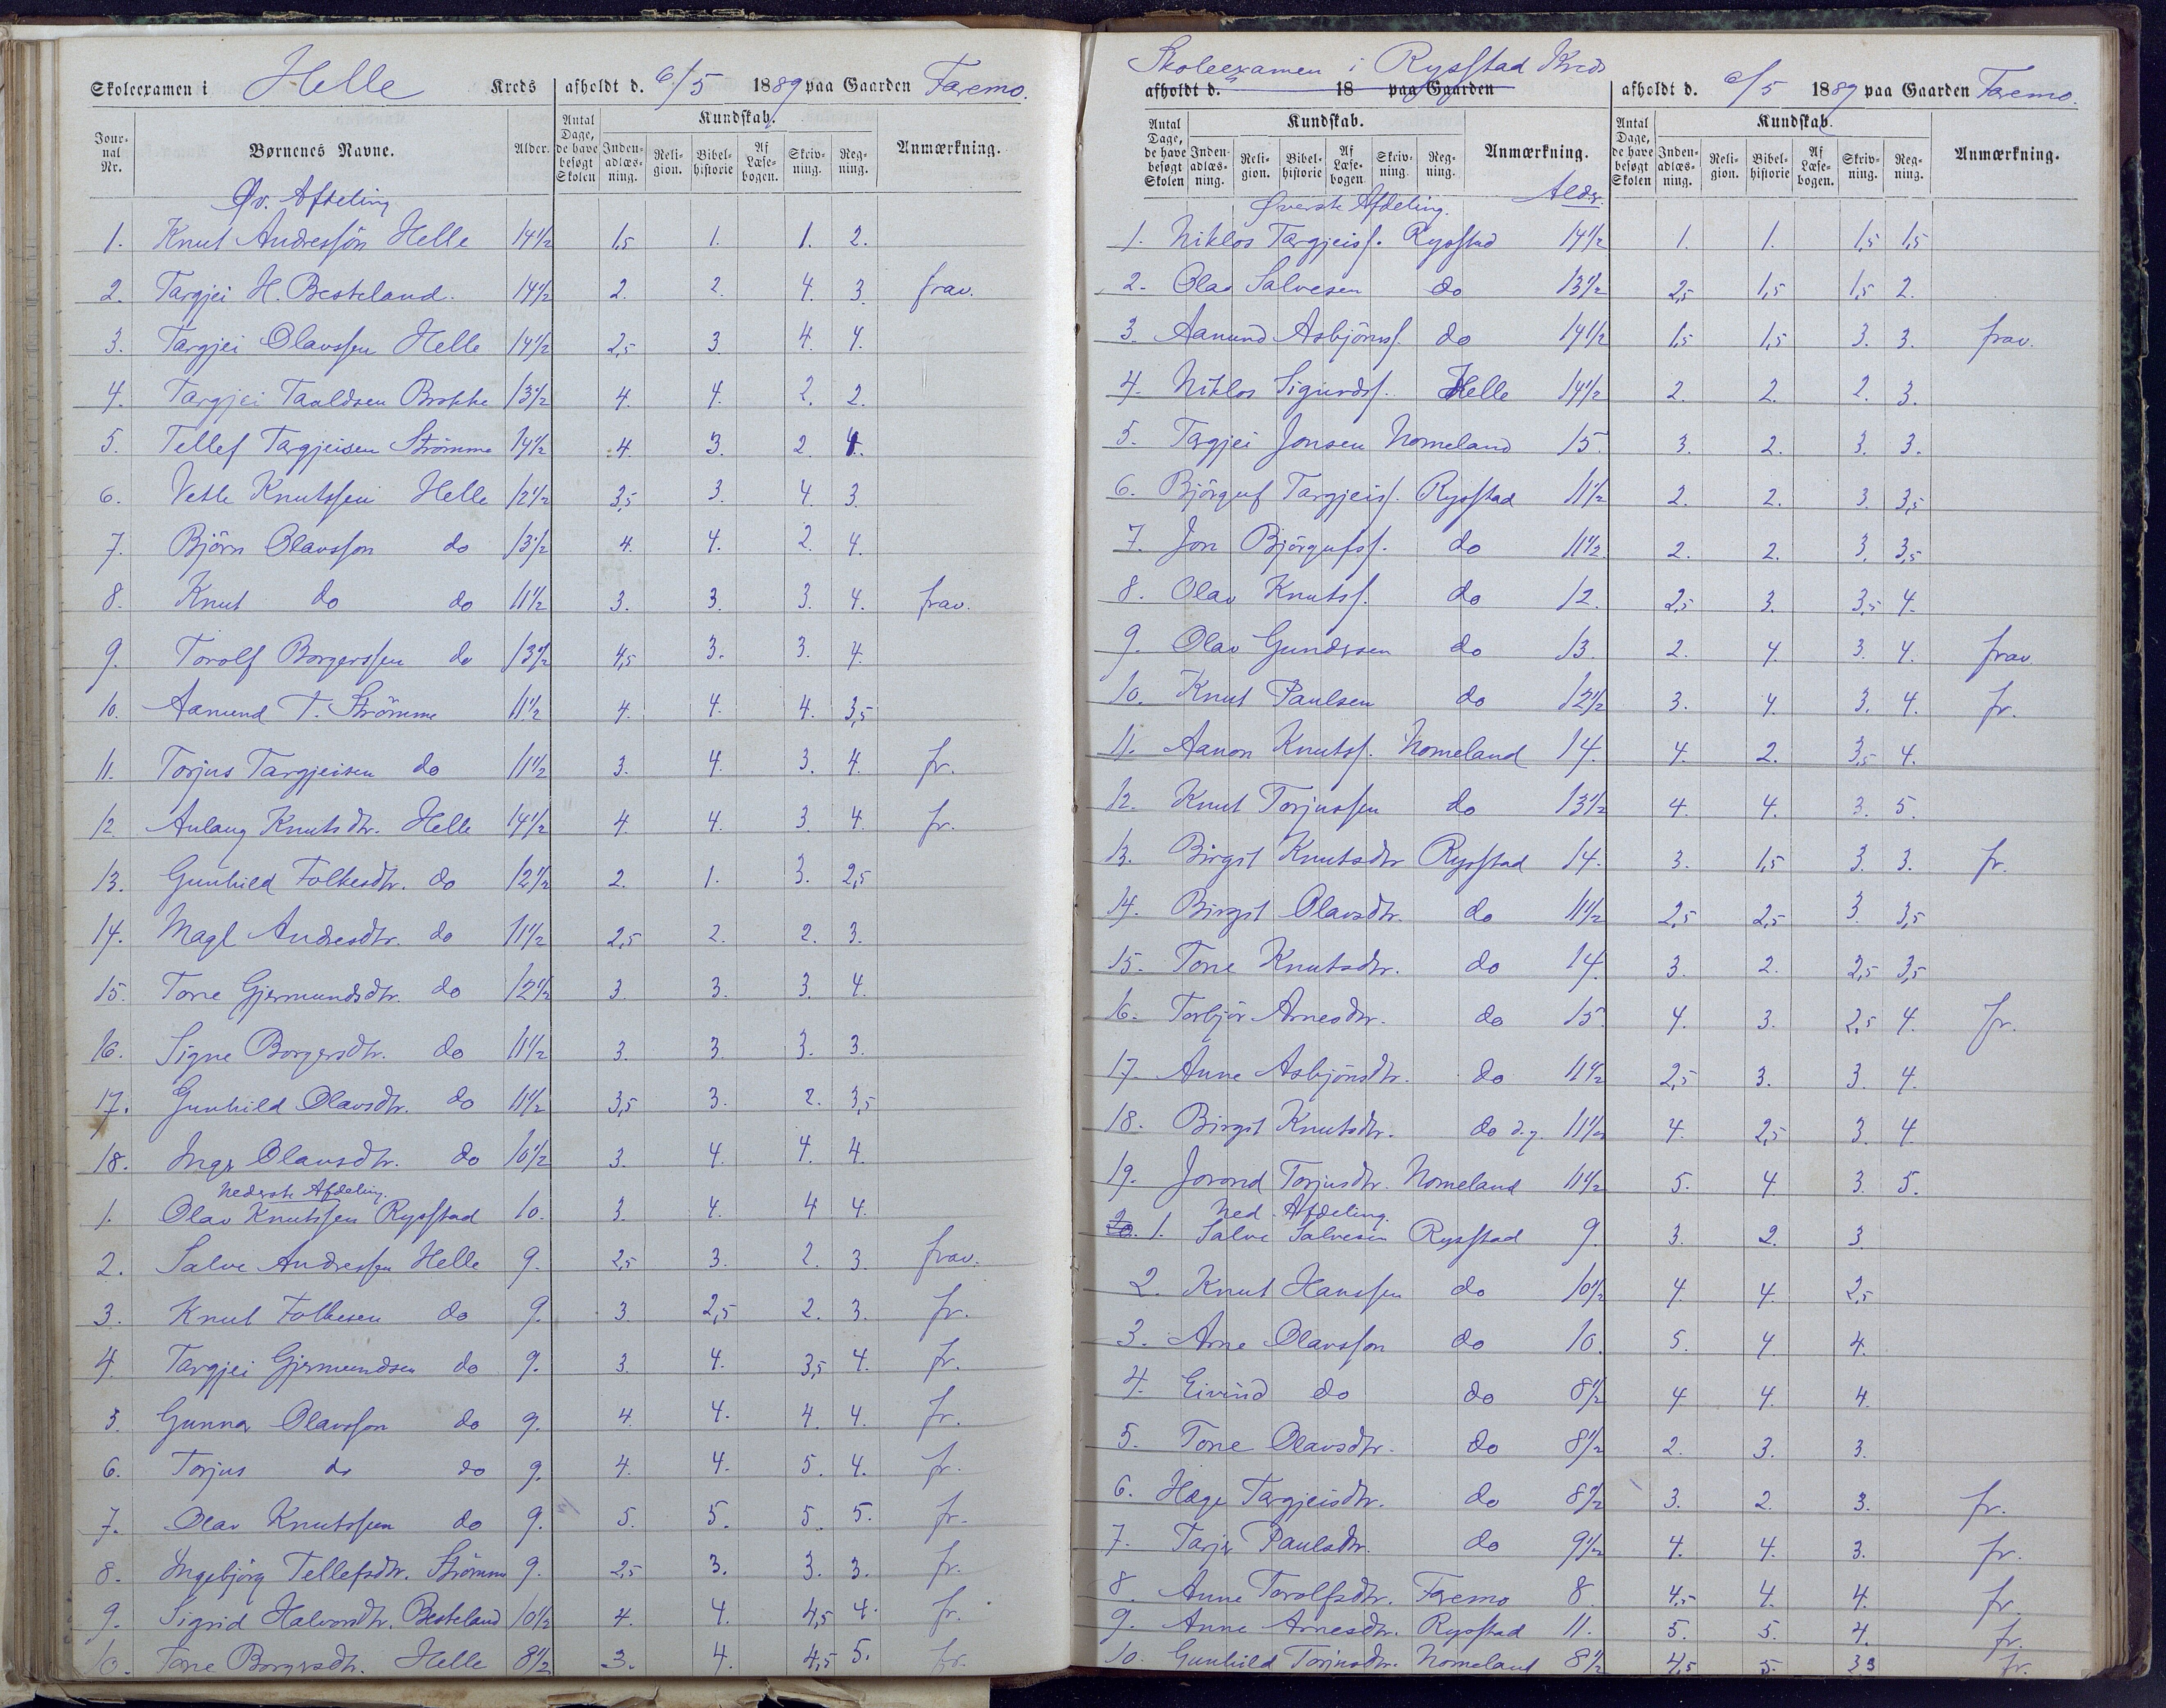 Skoleexamen i Helle Kreds afholdt d. 6/5 1889 paa Gaarden Faremo.
Jour-nal Nr. Børnenes Navne. Alder. Antal Dage, de have besøgt Skolen Kundskab. Inden-adlæs-ning. Reli-gion. Bibel-historie Af Læse-bogen. Skriv-ning. Reg-ning. Anmærkning.
Øv. Afdeling
1. Knut Andresson Helle 14½ 1,5 1. 1. 2.
2. Targjei H. Besteland. 14½ 2. 2. 4. 3. frav.
3. Targjei Olavssen Helle 14½ 2,5 3. 4. 4.
4. Targjei Taaldsen Brokke 13½ 4. 4. 2. 2.
5. Tellef Targjeisen Strömme 14½ 4. 3. 2. 4.
6. Vetle Knutssen Helle 12½ 3,5 3. 4. 3.
7. Björn Olavsson do 13½ 4. 4. 2. 4.
8. Knut do do 11½ 3. 3. 3. 4. frav.
9. Torolf Borgerssen do 13½ 4,5 3. 3. 4.
10. Aamund T. Strömme 11½ 4. 4. 4. 3,5
11. Torjus Targjeisen do 11½ 3. 4. 3. 4. fr.
12 Aulaug Knutsdtr. Helle 14½ 4. 4. 3. 4. fr.
13. Gunhild Folkesdtr. do 12½ 2. 1. 3. 2,5
14. Magl Andresdtr. do 11½ 2,5 2. 2. 3.
15. Tone Gjermundsdtr. do 12½ 3. 3. 3. 4.
16. Signe Borgersdtr. do 11½ 3. 3. 3. 3.
17. Gunhild Olavsdtr. do 11½ 3,5 3. 2. 3,5
18. Inger Olavsdtr. do 10½ 3. 4. 4. 4.
Nederste Afdeling.
1. Olav Knutssen Rysstad 10. 3. 4. 4 4.
2. Salve Andressen Helle 9. 2,5 3. 2. 3. frav.
3. Knut Folkesen do 9. 3. 2,5 2. 3. fr.
4. Targjei Gjermundsen do 9. 3. 4. 3,5 4. fr.
5. Gunnar Olavsson do 9. 4. 4. 4. 4. fr.
6. Torjus do do 9. 4. 4. 5. 4. fr.
7. Olav Knutssen do 9. 5. 5. 5. 5. fr.
8. Ingebjörg Tellefsdtr. Strömme 9. 2,5 3. 3. 3. fr.
9. Sigrid Halvorsdtr. Besteland 10½ 4. 4. 4,5 4. fr.
10. Tone Borgersdtr. Helle 8½ 3. 4. 4,5 5. fr.
Skoleexamen i Rysstad Kreds
afholdt d. 18 paa Gaarden afholdt d. 6/5 1889 paa Gaarden Faremo.
Antal Dage, de have besøgt Skolen Kundskab. Inden-adlæs-ning. Reli-gion. Bibel-historie Af Læse-bogen Skriv-ning. Reg-ning. Anmærkning. Antal Dage, de have besøgt Skolen Kundskab. Inden-adlæs-ning. Reli-gion. Bibel-historie Af Læse-bogen. Skriv-ning. Reg-ning. Anmærkning.
Øverste Afdeling. Alder.
1. Niklos Targjeiss. Rysstad 14½ 1. 1. 1,5 1,5
2. Olav Salvesen do 13½ 2,5 1,5 1,5 2.
3. Aanund Asbjörnss. do 14½ 1,5 1,5 3. 3. frav.
4. Niklos Sigurdss. Helle 14½ 2. 2. 2. 3.
5. Targjei Jonsen Nomeland 15. 3. 2. 3. 3.
6. Björguf Targjeiss. Rysstad 11½ 2. 2. 3. 3,5
7. Jon Björgufss. do 11½ 2. 2. 3. 3,5
8. Olav Knutss. do 12. 2,5 3. 3,5 4.
9. Olav Gundersen do 13. 2. 4. 3. 4. frav
10. Knut Paulsen do 12½ 3. 4. 3. 4. fr.
11. Aanon Knutss. Nomeland 14. 4. 2. 3,5 4.
12. Knut Torjussen do 13½ 4. 4. 3. 5.
13. Birgit Knutsdtr Rysstad 14. 3. 1,5 3. 3. fr.
14. Birgit Olavsdtr. do 11½ 2,5 2,5 3. 3,5
15. Tone Knutsdtr. do 14. 3. 2. 2,5 3,5
16. Torbjör Arnesdtr. do 15. 4. 3. 2,5 4. fr.
17. Anne Asbjönsdtr. do 11½ 2,5 3. 3. 4.
18. Birgit Knutsdtr. do d.y. 11½ 4. 2,5 3. 4.
19. Jorond Torjusdtr. Nomeland 11½ 5. 4. 3. 5.
Ned. Afdeling.
20. 1. Salve Salvesen Rysstad 9. 3. 2. 3.
2. Knut Hanssen do 10½ 4. 4. 2,5
3. Arne Olavsson do 10. 5. 4. 4.
4. Eivind do do 8½ 4 4. 4.
5. Tone Olavsdtr. do 8½ 2. 3. 3.
6. Hæge Targjeisdtr. do 8½ 3. 2. 3. fr.
7. Tarjer Paulsdtr. do 9½ 4. 4. 3. fr.
8. Anne Torolfsdtr. Faremo 8. 4,5 4. 4. fr.
9. Anne Arnesdtr. Rysstad 11. 5. 5. 4. fr.
10. Gunhild Torjusdtr. Nomeland 8½ 4,5 5. 3 3 fr.